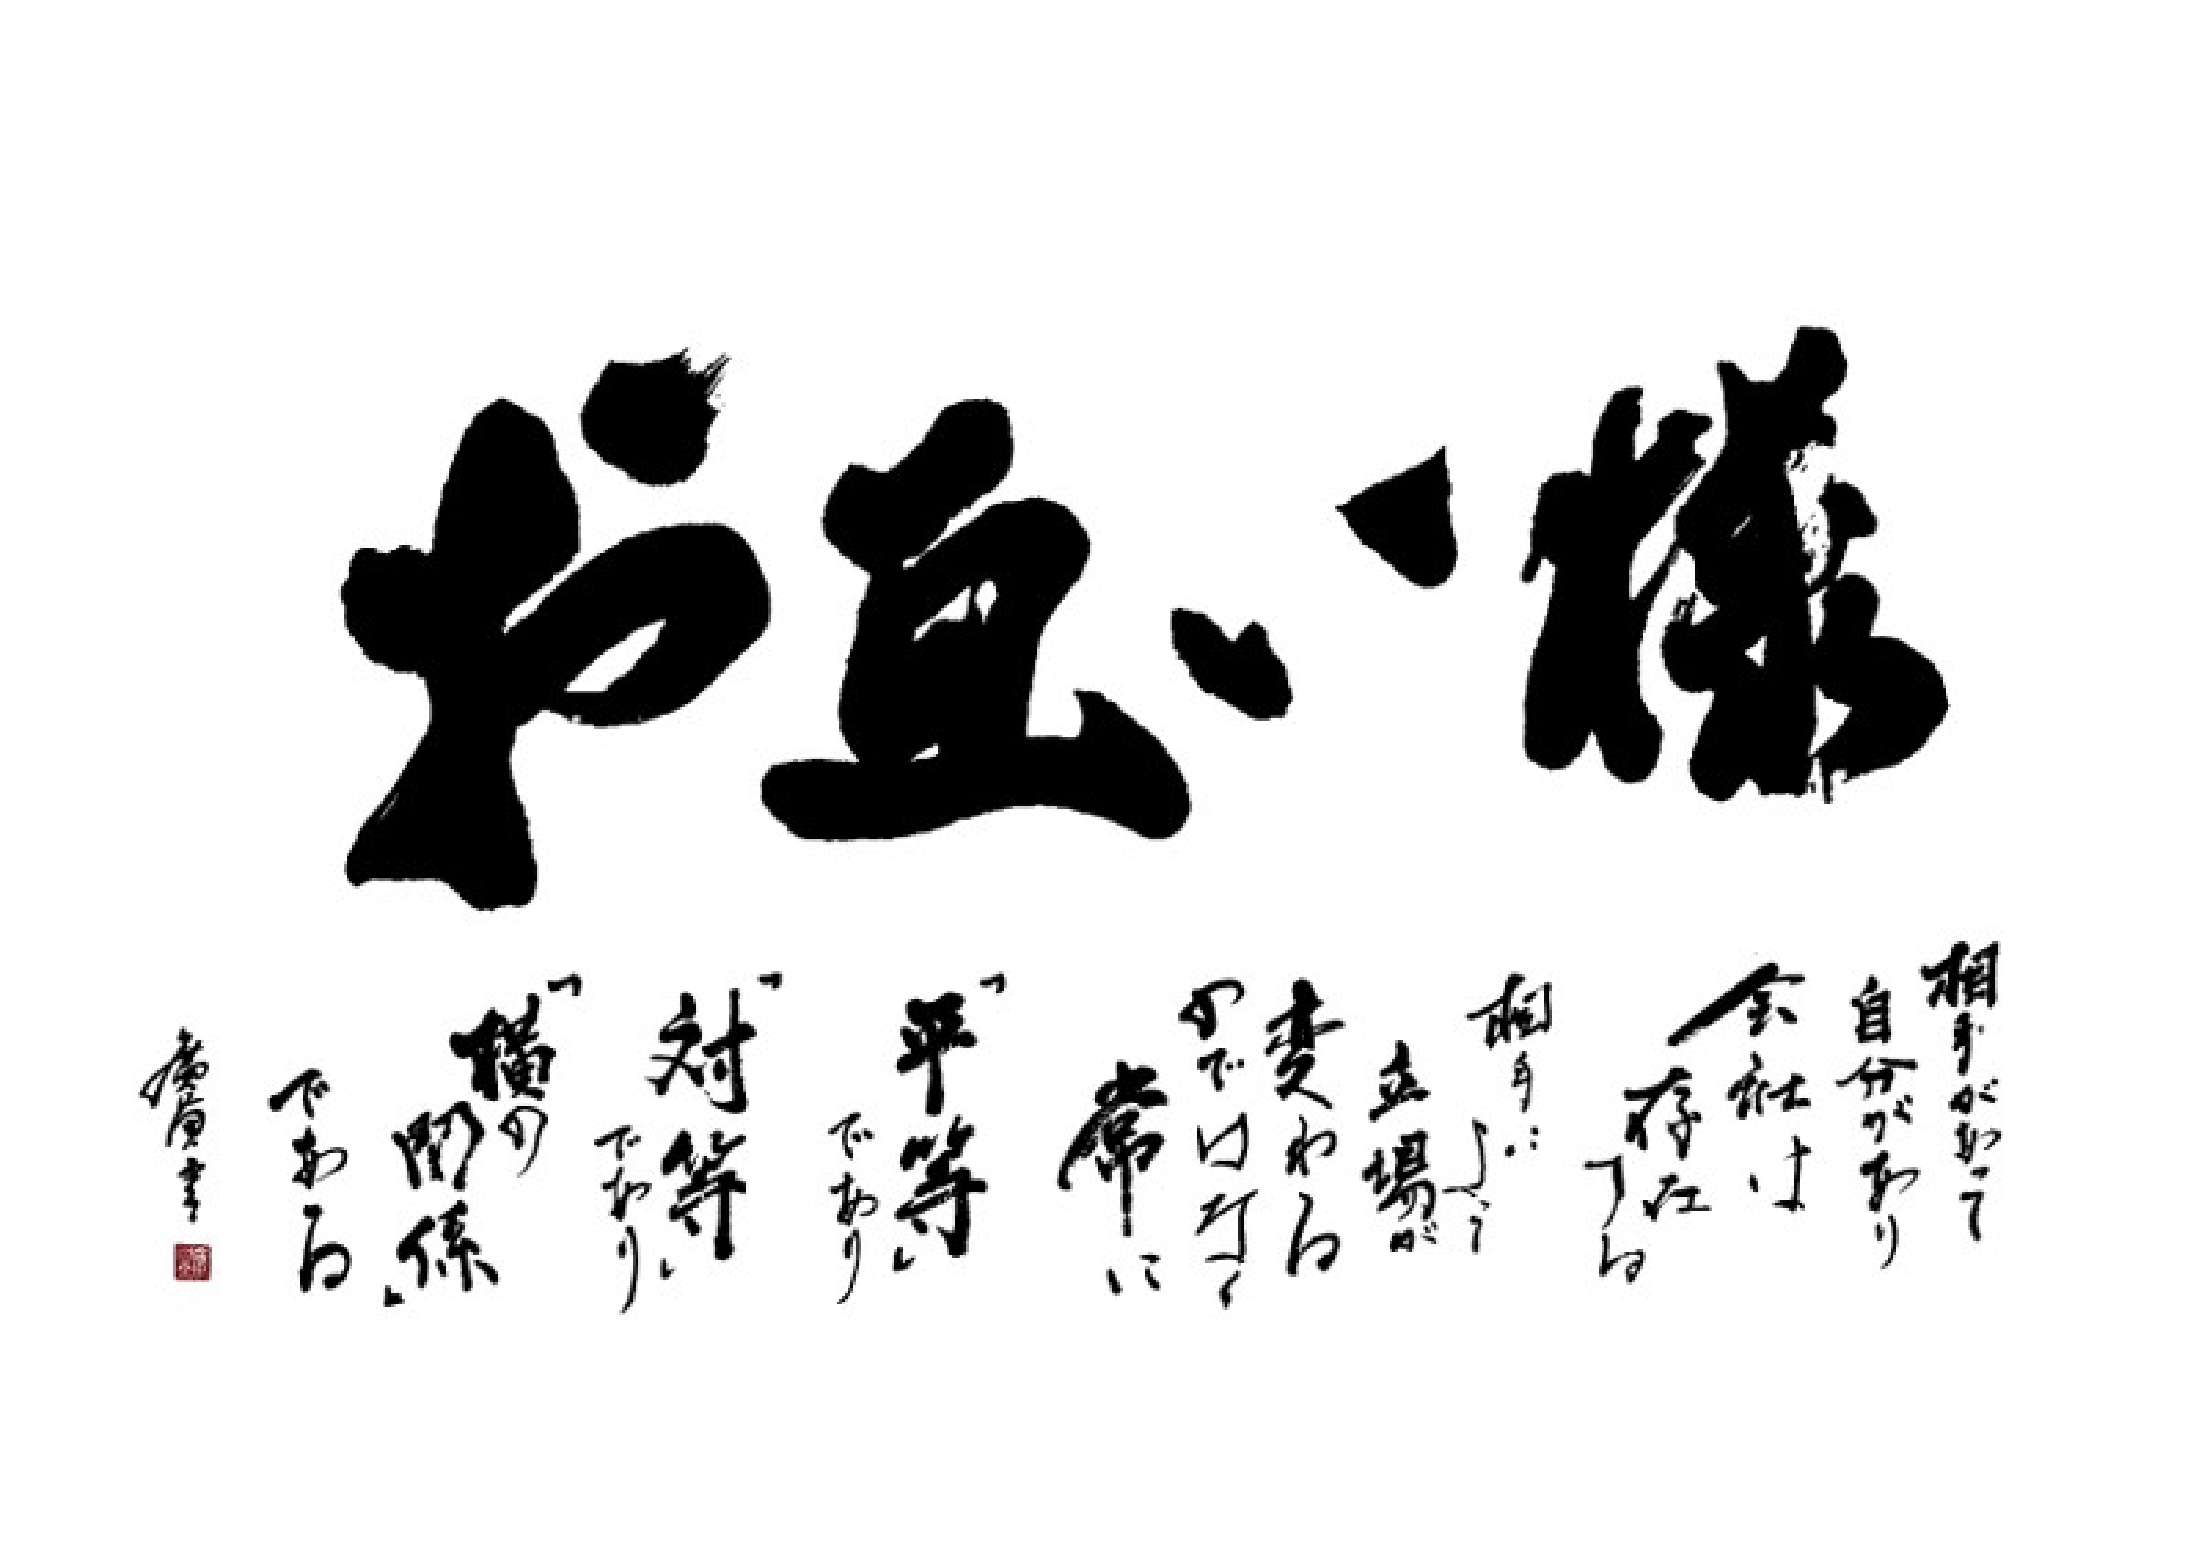 お互い様
相手があって
自分があり
会社は
存在
する
相手によって
立場が
変わる
のではなく
常に
「平等」
であり
「対等」
であり
「横の
関係」
である
廣書